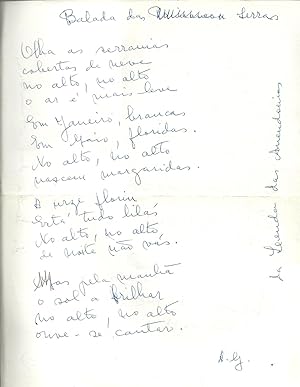 Balada das Serras
Olha as serranias
cobertas de neve
no alto, no alto
o ar é mais leve
Em Janeiro, brancas
Em Maio, floridas.
No alto, no alto
nascem margaridas.
A urze floriu
Está tudo lilás
No alto, no alto,
de noite não vás.
Mas pela manhã
o sol a brilhar
no alto, no alto
ouve-se cantar.
da Lenda das Amendoeiras
A. G.